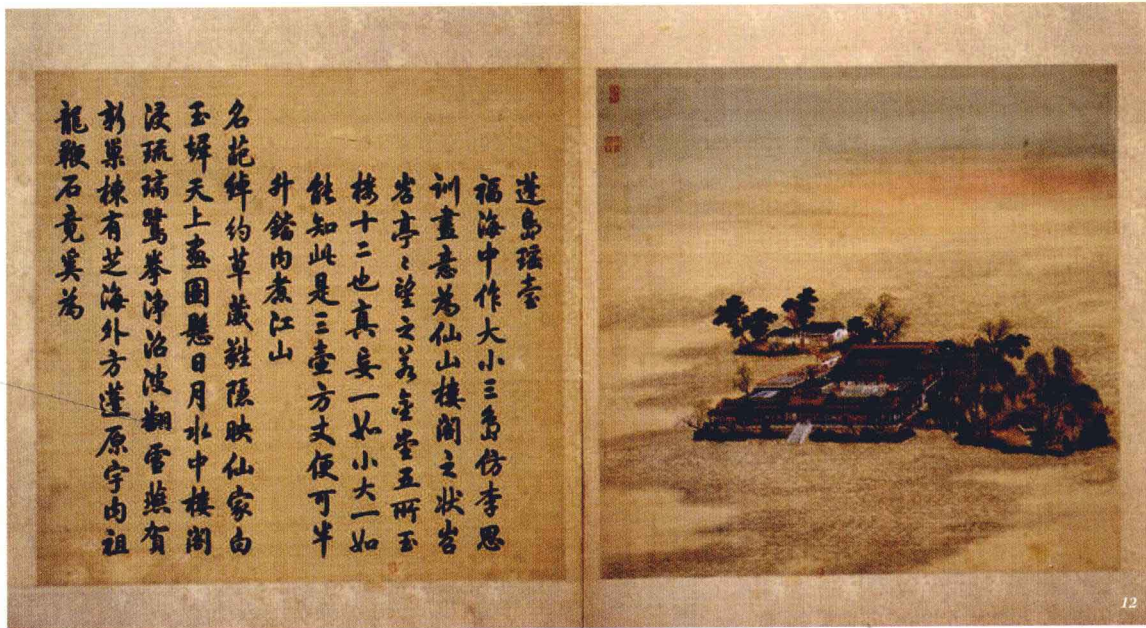 蓬島瑶臺
福海中作大小三島仿李思
訓畫意為仙山樓閣之狀岧
岧亭〻望之若金堂五所玉
樓十二也真妄一如小大一如
能知此是三壺方丈便可半
升鐺内煮江山
名葩綽約草葳蕤隱映仙家白
玉墀天上畫圖懸日月水中樓閣
浸琉璃鷺拳淨沼波翻雪燕賀
新巢棟有芝海外方蓬原宇内祖
龍鞭石竟奚為
12